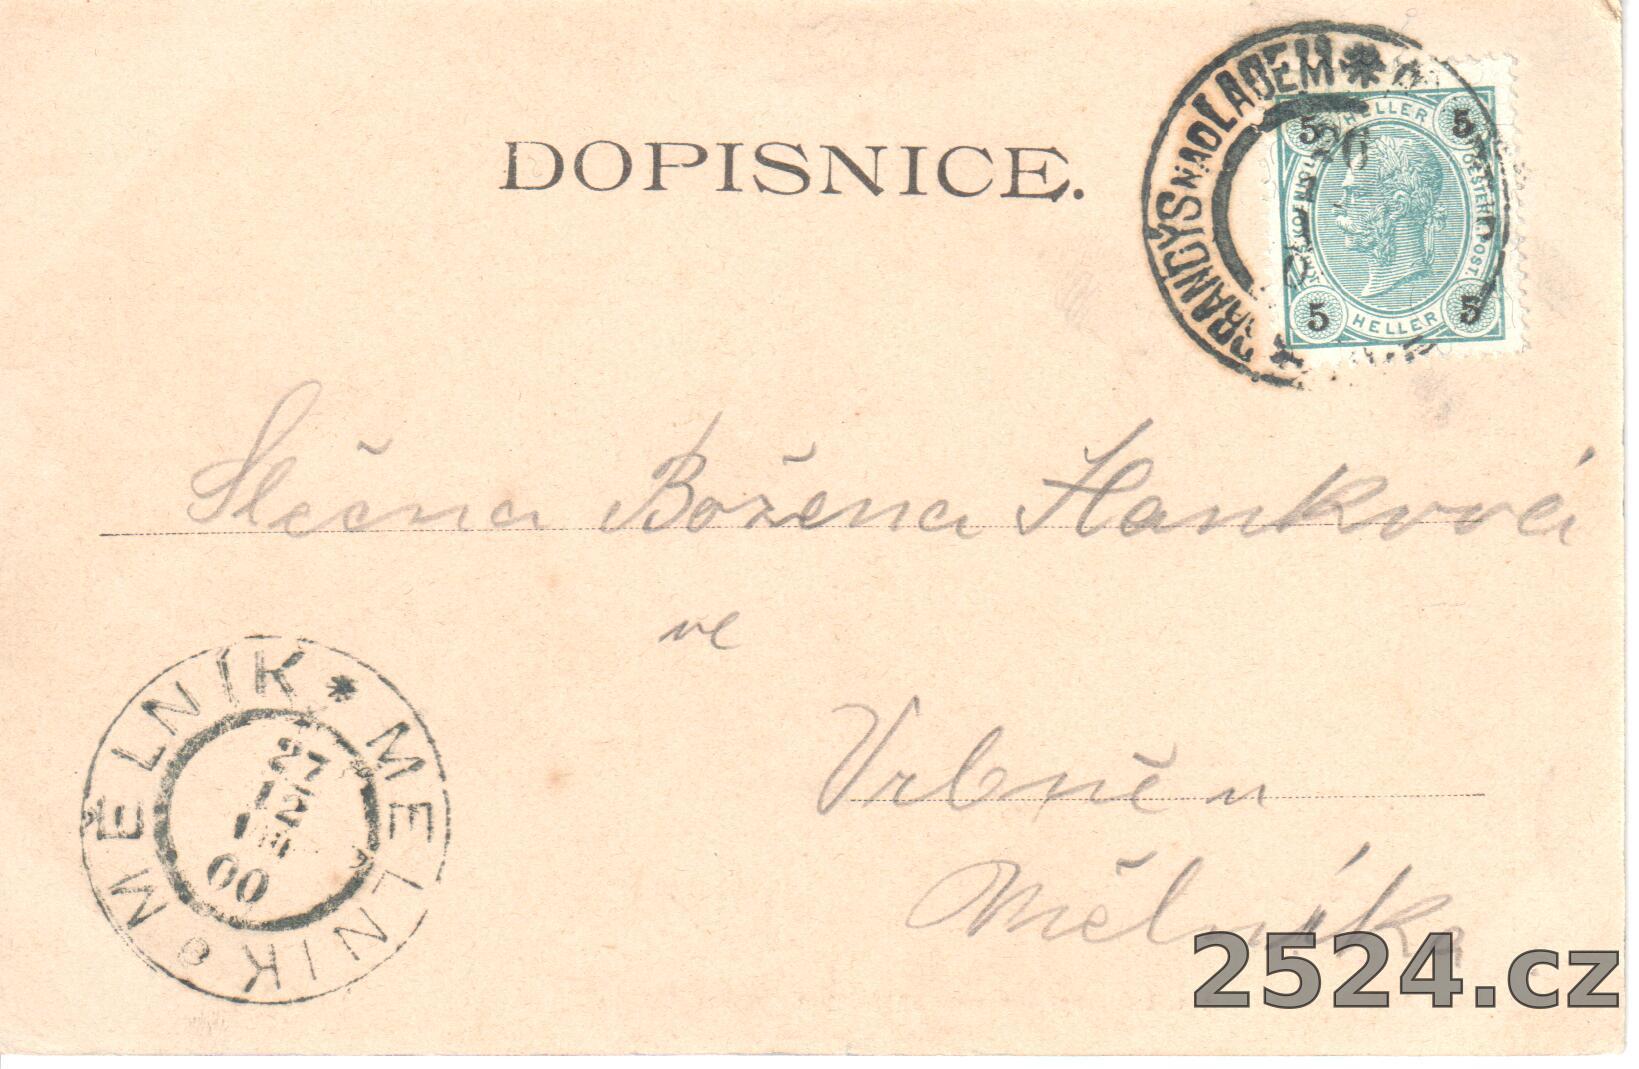 DOPISNICE.
BRANDÝS NAD LABEM
5 HELLER 5
26
KAIS. KÖNIGL. OESTERR. POST.
5 HELLER 5
Slečna Božena Hanková
ve
Vrbně u
Mělníka
MĚLNÍK * MELNIK
27
12
00
2524.cz